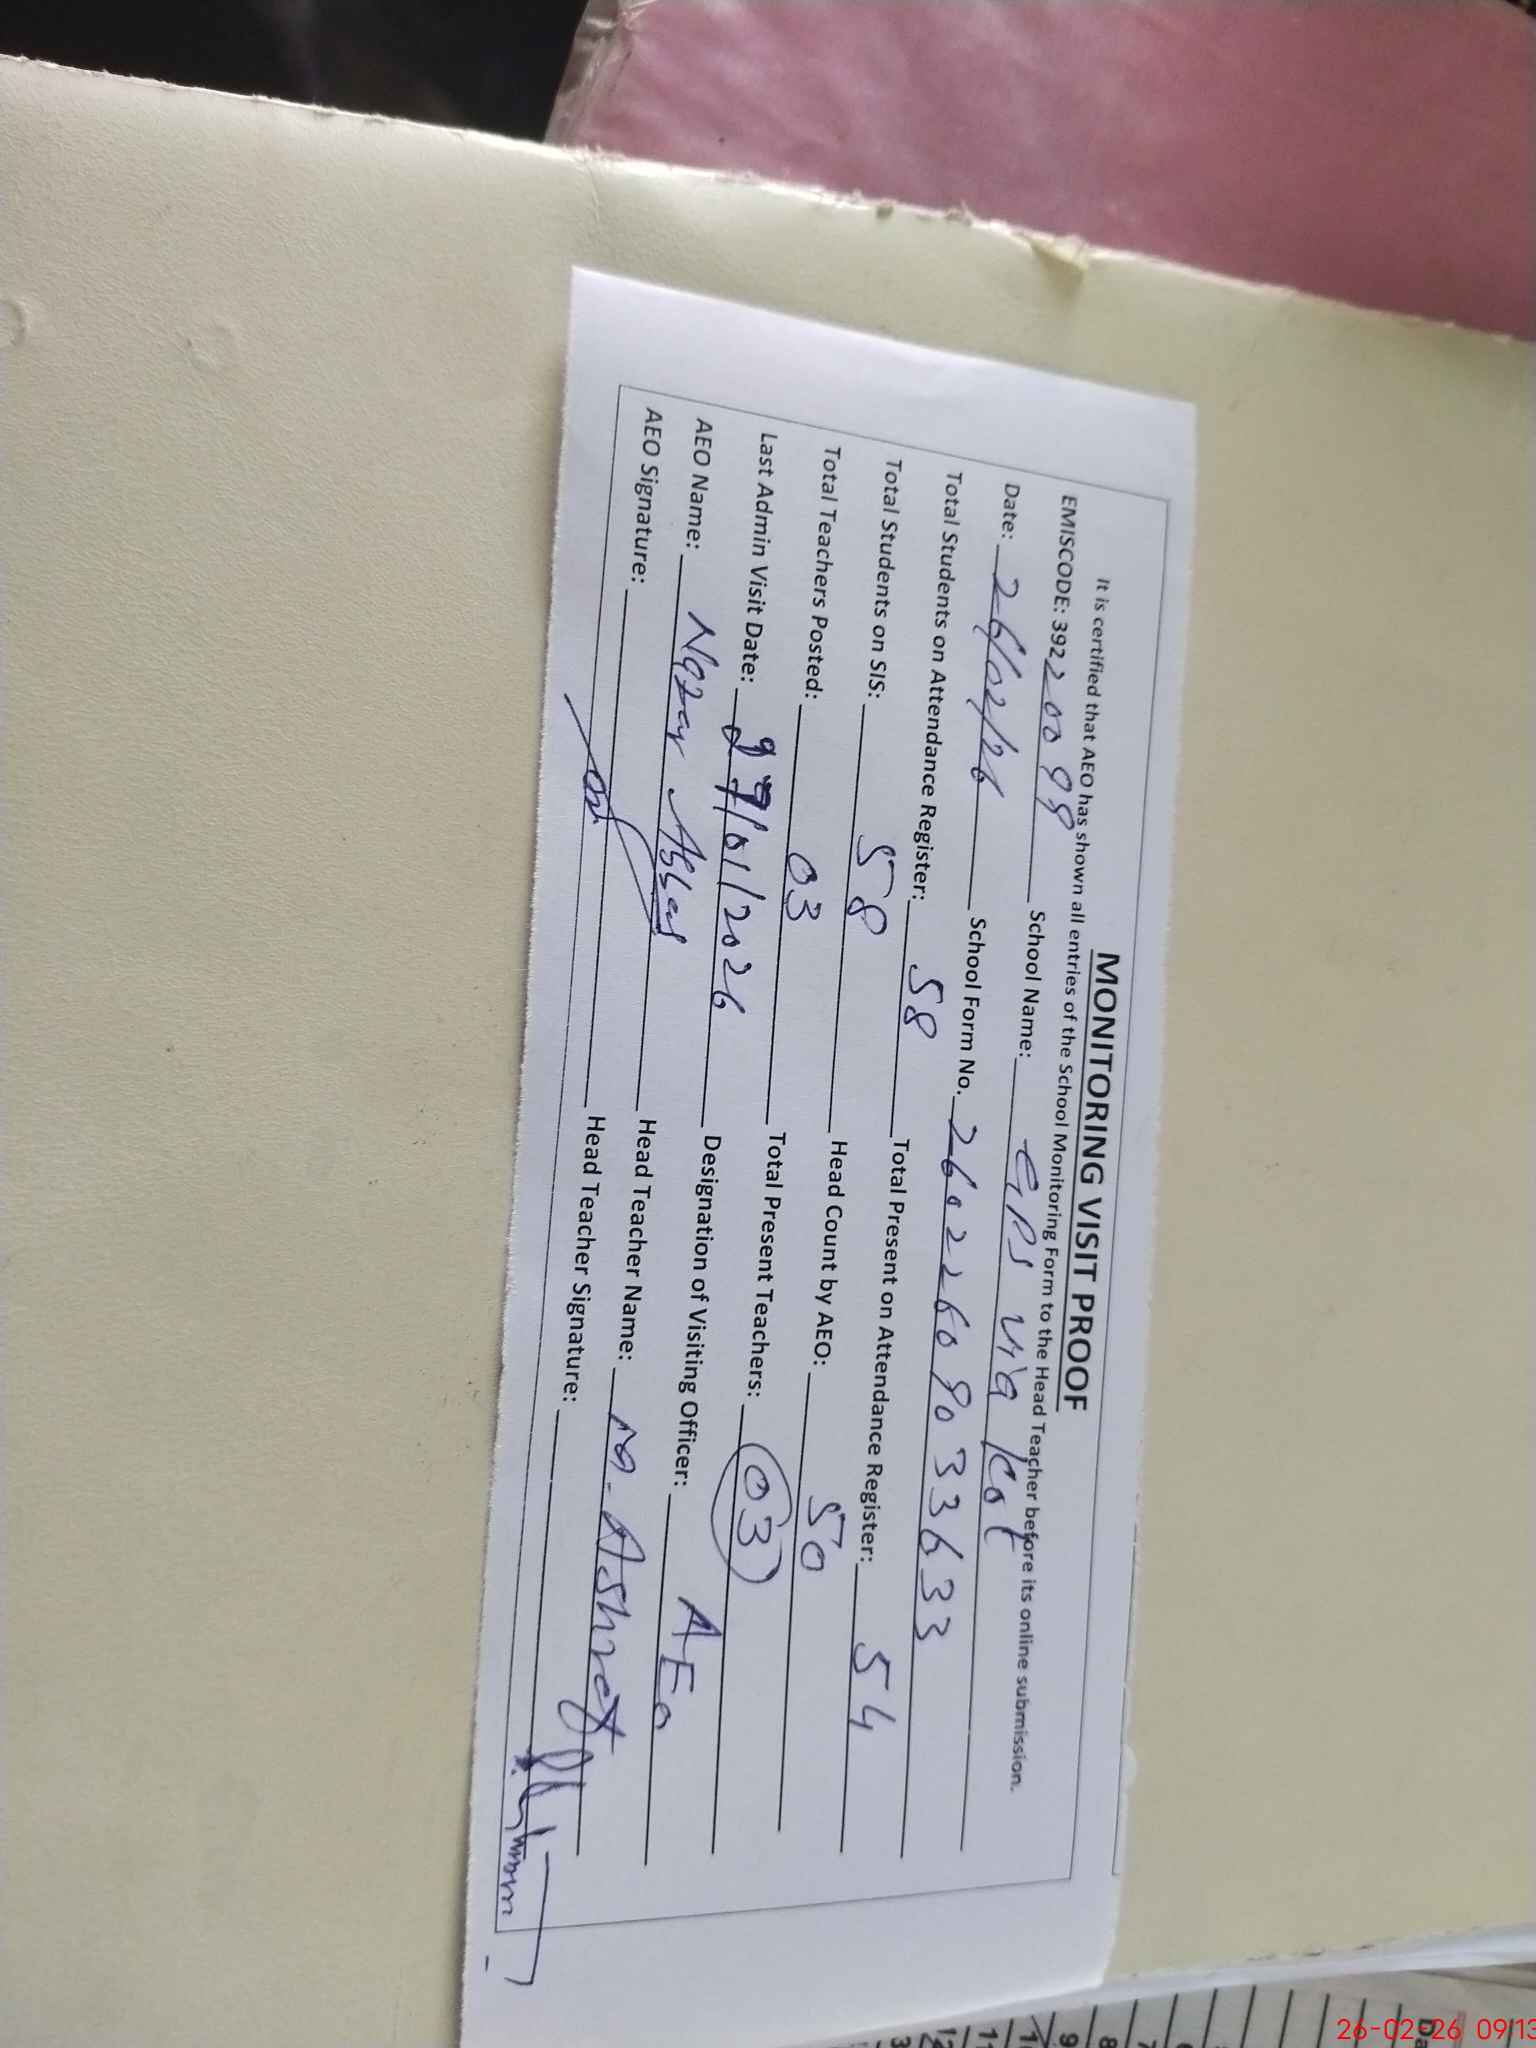 MONITORING VISIT PROOF
It is certified that AEO has shown all entries of the School Monitoring Form to the Head Teacher before its online submission.
EMISCODE: 392 20098 School Name: GPS Via Kot
Date: 26/02/26 School Form No. 26022609033633
Total Students on Attendance Register: 58 Total Present on Attendance Register: 54
Total Students on SIS: 58 Head Count by AEO: 50
Total Teachers Posted: 03 Total Present Teachers: 03
Last Admin Visit Date: 27/01/2026 Designation of Visiting Officer: AEO
AEO Name: Nazar Abbas Head Teacher Name: M. Ashraf
AEO Signature: Head Teacher Signature:
Da
7
8
9
11
12
3
26-02-26 09:13